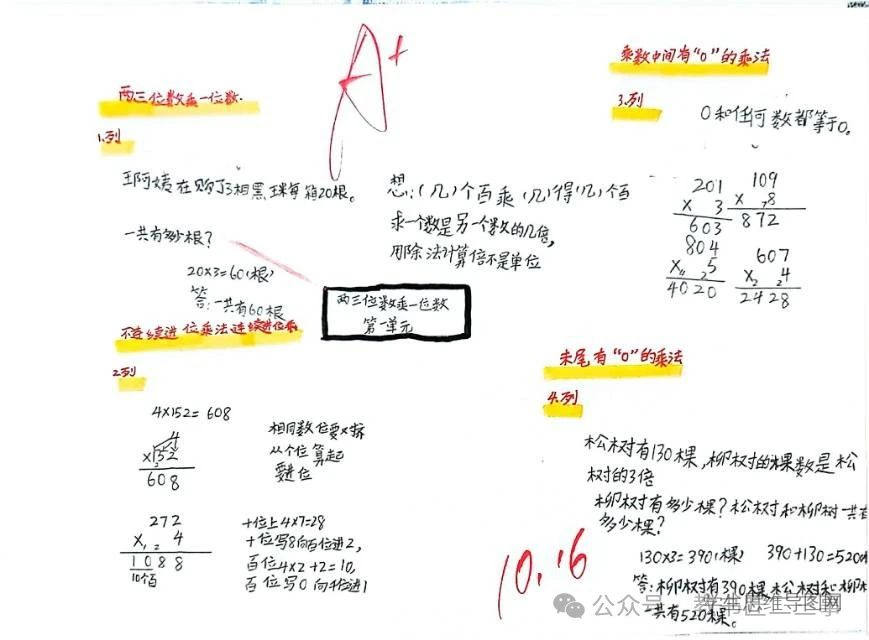 A+
两三位数乘一位数.
1.列
王阿姨在购了3相黑球每箱20根。
一共有多少根?
20×3=60(根)
答:一共有60根
想:(几)个百乘(几)得(几)个百
求一个数是另一个数的几倍,
用除法计算倍不是单位
两三位数乘一位数
第一单元
不连续进位乘法连续进位
2.列
4×152=608
4
×152
608
相同数位要对
从个位算起
要进位
272
× 4
1088
10个百
十位上4×7=28
十位写8向百位进2,
百位4×2+2=10,
百位写0向千位进1
乘数中间有“0”的乘法
3.列
0和任何数都等于0。
201
× 3
603
109
× 8
872
804
× 5
4020
607
× 4
2428
末尾有“0”的乘法
4.列
松树有130棵,柳树的棵数是松
树的3倍
柳树有多少棵?松树和柳树一共有
多少棵?
130×3=390(棵) 390+130=520
答:柳树有390棵松树和柳树
一共有520棵。
10.16
公众号
学生思维导图网